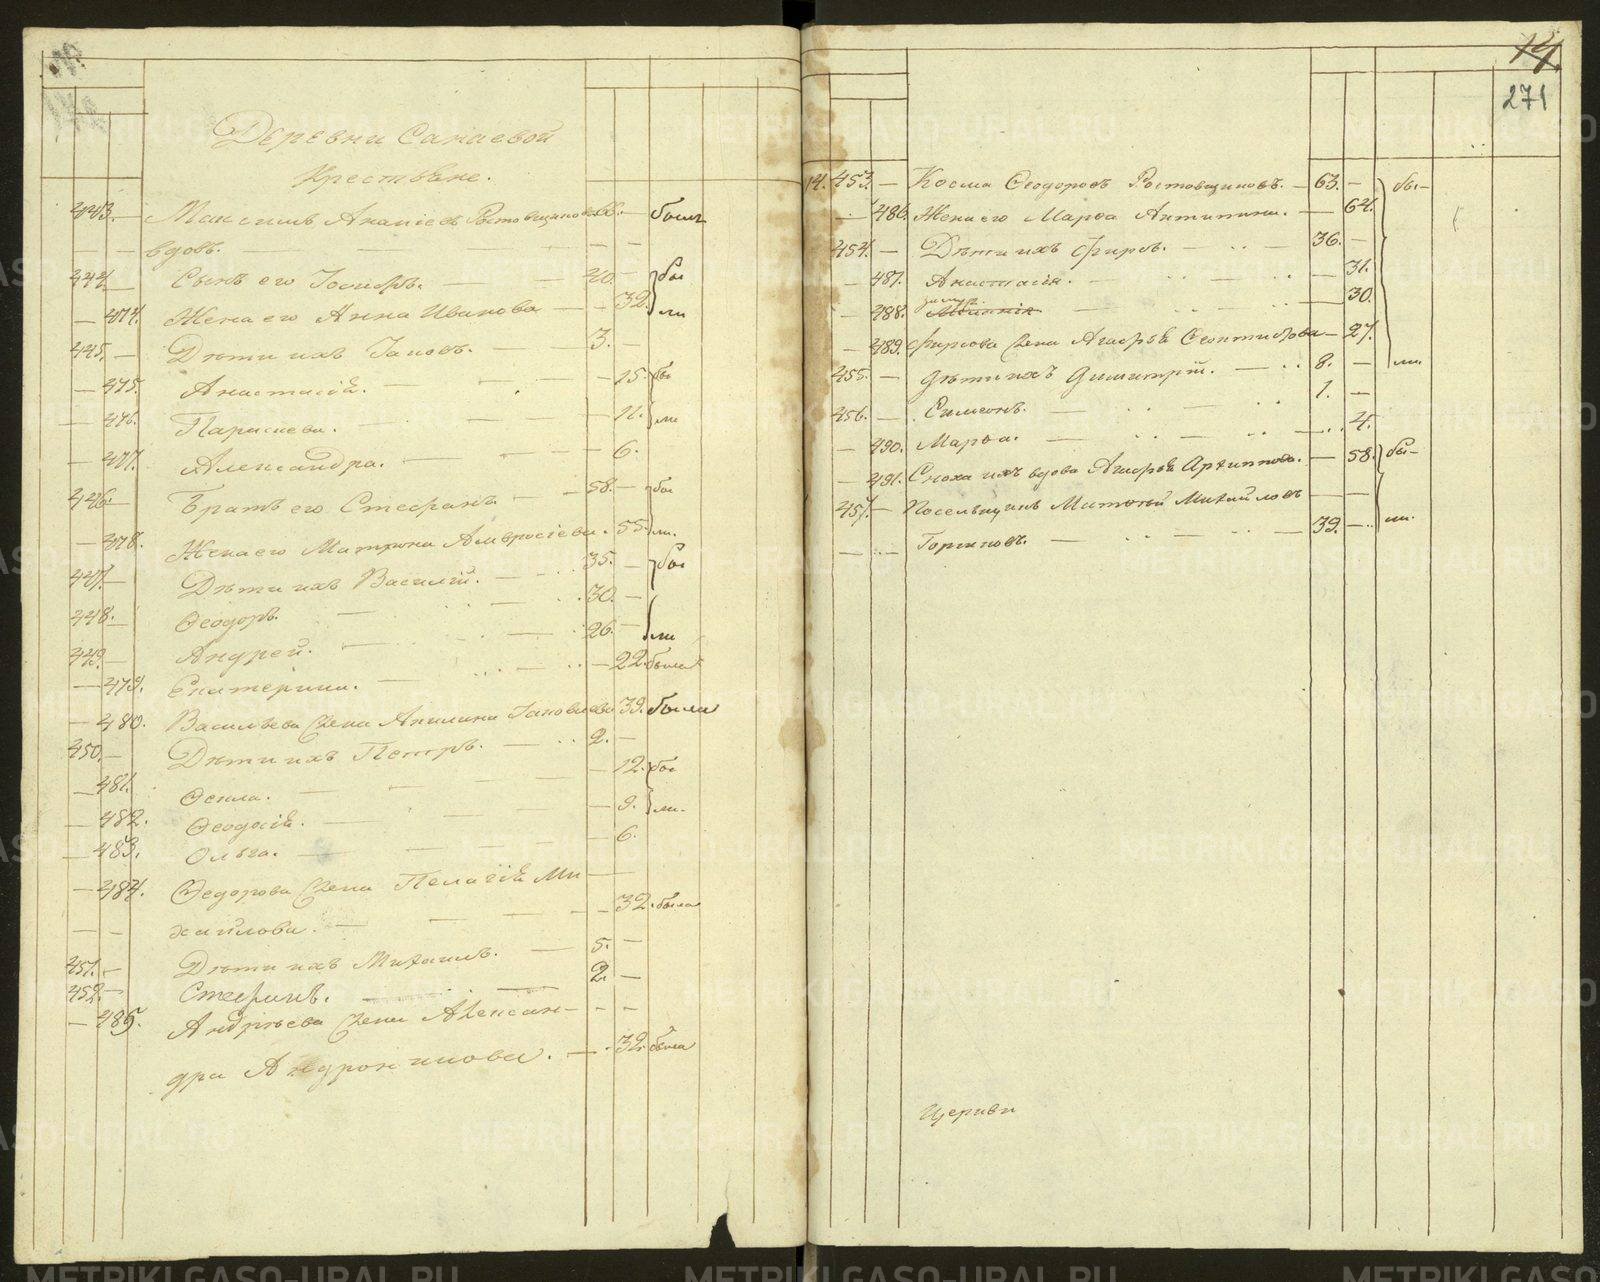 Деревни Санаевой
Крестьяне.
443. — Максимъ Ананіевъ Ростовщиковъ 66. — былъ
— — вдовъ. — — —
444. — Сынъ его Іосифъ. — — 40. — бы
— 474. Жена его Анна Иванова — — 32. ли
445. — Дѣти ихъ Іаковъ. — — 3. —
— 475. Анастасія. — — — 15. бы
— 476. Параскева. — — — 11. ли
— 477. Александра. — — — 6.
446. — Братъ его Стефанъ. — — 58. — бы
— 478. Жена его Матрона Амвросіева. 55. ли.
447. — Дѣти ихъ Василій. — 35. — бы
448. — Ѳеодоръ. — 30. —
449. — Андрей. — 26. — ли
— 479. Екатерина. — — 22. была
— 480. Васильева жена Акилина Іаковлева 39. была
450. — Дѣти ихъ Петръ. — 2. —
— 481. Ѳекла. — — — 12. бы
— 482. Ѳеодосія. — — — 9. ли.
— 483. Ольга. — — — 6.
— 484. Ѳедорова жена Пелагія Ми —
— — хайлова. — — — 32. была
451. — Дѣти ихъ Михаилъ. — 5. —
452. — Стефанъ. — — 2. —
— 485. Андрѣева жена Алексан- — —
дра Андроникова. — 32. была
14.
271
14. 453. — Косма Ѳеодоровъ Ростовщиковъ. — 63. — бы-
— 486. Жена его Марѳа Антипина. — 64.
454. — Дѣти ихъ Фирсъ. — — 36. —
— 487. Анастасія. — — — 31.
— 488. — — 30.
— 489. Фирсова жена Агафія — 27.
455. — Дѣти ихъ Димитрій. — 8. — ли.
456. — Симеонъ. — — 1. —
— 490. Марѳа. — — — 4.
— 491. Сноха ихъ вдова Агафія Архипова. — 58. бы-
457. — Посельщикъ Матѳей Михайловъ — —
— — — 39. — ли.
Церкви
METRIKI.GASO-URAL.RU